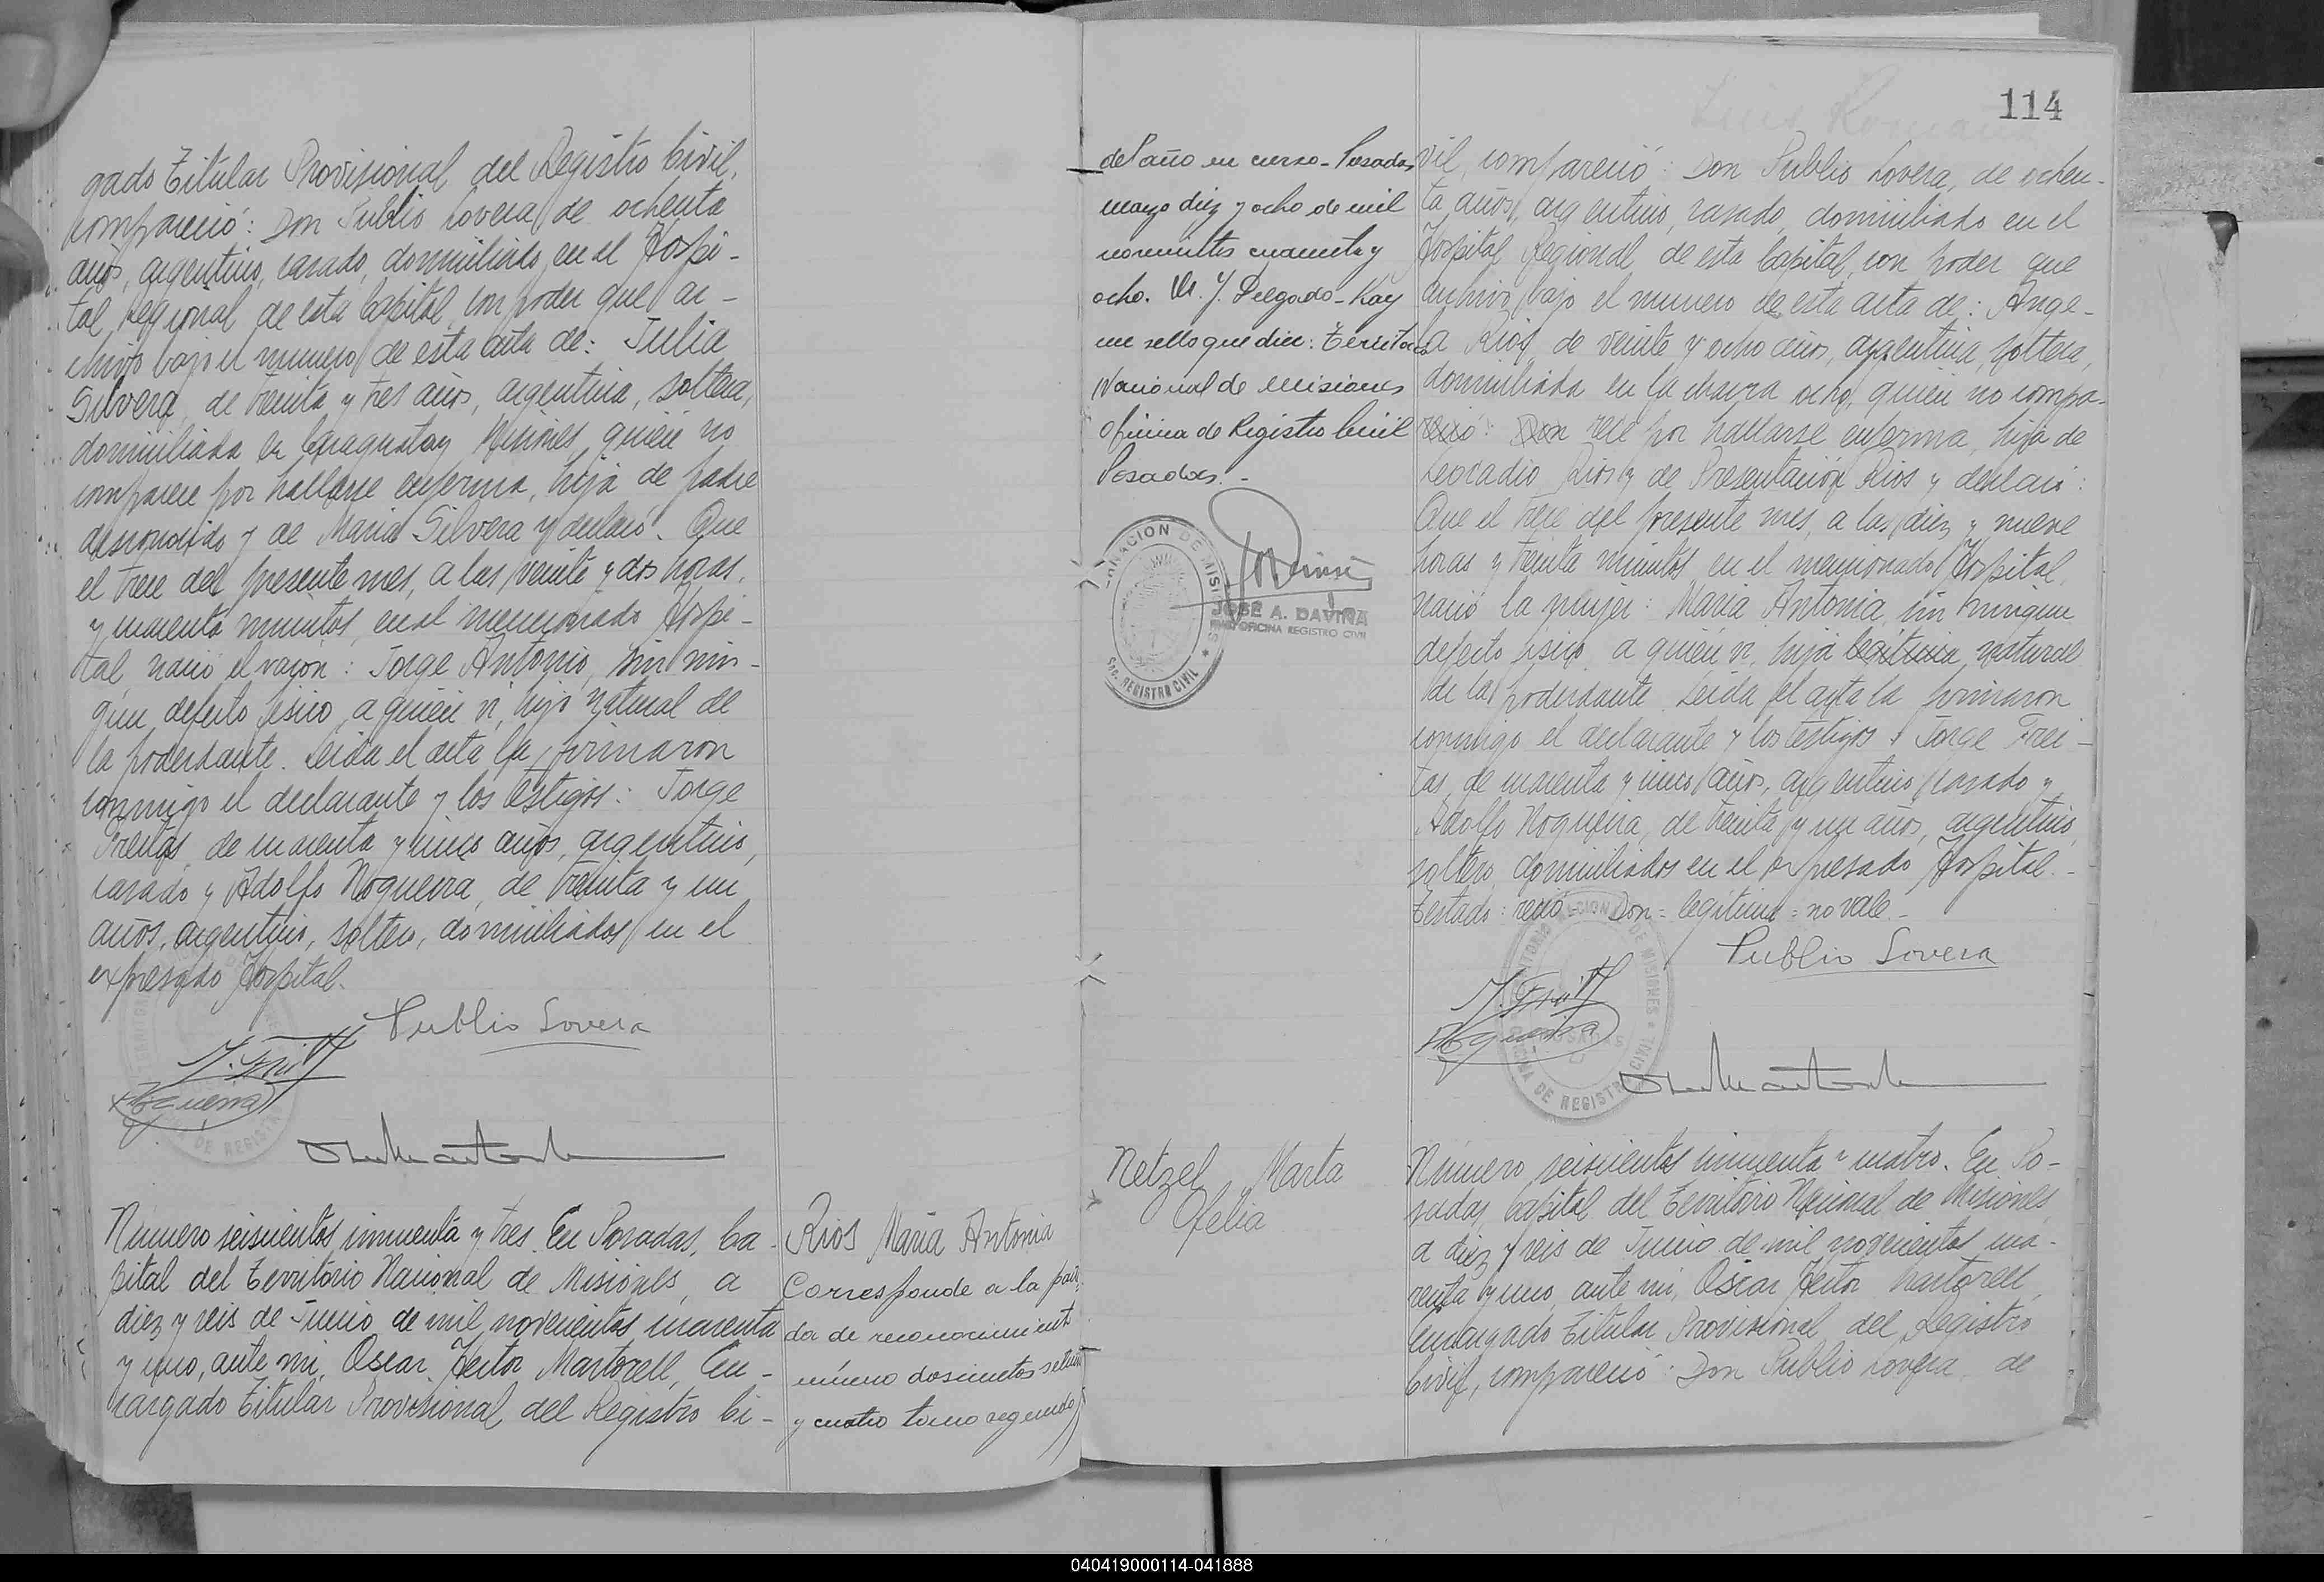 gado Titular Provisional del Registro Civil,
compareció: Don Publio Lovera, de ochenta
años, argentino, casado, domiciliado en el Hospi-
tal Regional de esta Capital, con poder que ar-
chivo bajo el numero de esta acta de: Julia
Silvera, de treinta y tres años, argentina, soltera,
domiciliada en Caraguatay Misiones, quién no
comparece por hallarse enferma, hija de padre
desconocido y de Maria Silvera y declaró: Que
el trece del presente mes, a las veinte y dos horas
y cuarenta minutos, en el mencionado Hospi-
tal, nació el varón: Jorge Antonio, sin nin-
gún defecto físico, a quién vi, hijo natural de
la poderdante. Leída el acta la firmaron
conmigo el declarante y los testigos: Jorge
Freitas, de cuarenta y cinco años, argentino,
casado y Adolfo Nogueira, de treinta y un
años, argentino, soltero, domiciliados en el
expresado Hospital.
Publio Lovera
Número seiscientos cincuenta y tres. En Posadas, Ca-
pital del Territorio Nacional de Misiones, a
diez y seis de Junio de mil novecientos cuarenta
y uno, ante mi, Oscar Héctor Martorell, En-
cargado Titular Provisional del Registro Ci-
Rios Maria Antonia
Corresponde a la parti-
da de reconocimiento
número doscientos setenta
y cuatro tomo segundo
114
del año en curso - Posadas
mayo diez y ocho de mil
novecientos cuarenta y
ocho. M. J. Delgado - Hay
un sello que dice: Territorio
Nacional de Misiones
Oficina de Registro Civil
Posadas. -
GOBERNACION DE MISIONES
SEC. REGISTRO CIVIL
JOSÉ A. DAVIÑA
OFICINA REGISTRO CIVIL
vil, compareció: Don Publio Lovera, de ochen-
ta años, argentino, casado, domiciliado en el
Hospital Regional de esta Capital, con poder que
archivo bajo el numero de esta acta de: Ange-
la Rios, de veinte y ocho años, argentina, soltera,
domiciliada en la chacra ocho, quién no compa-
reció: Don rece por hallarse enferma, hija de
Leocadio Rios y de Presentación Rios y declaró:
Que el trece del presente mes, a las diez y nueve
horas y treinta minutos, en el mencionado Hospital,
nació la mujer: Maria Antonia, sin ningun
defecto físico, a quién vi, hija legítima natural
de la poderdante. Leída el acta la firmaron
conmigo el declarante y los testigos: Jorge Frei-
tas, de cuarenta y cinco años, argentino, casado y
Adolfo Nogueira, de treinta y un años, argentino,
soltero, domiciliados en el expresado Hospital. -
Testado: reció = Don = legítima = no vale. -
Publio Lovera
Netzel Marta
Ofelia
Número seiscientos cincuenta y cuatro. En Po-
sadas, Capital del Territorio Nacional de Misiones
a diez y seis de Junio de mil novecientos cua-
renta y uno, ante mi, Oscar Héctor Martorell,
Encargado Titular Provisional del Registro
Civil, compareció: Don Publio Lovera, de
040419000114-041888